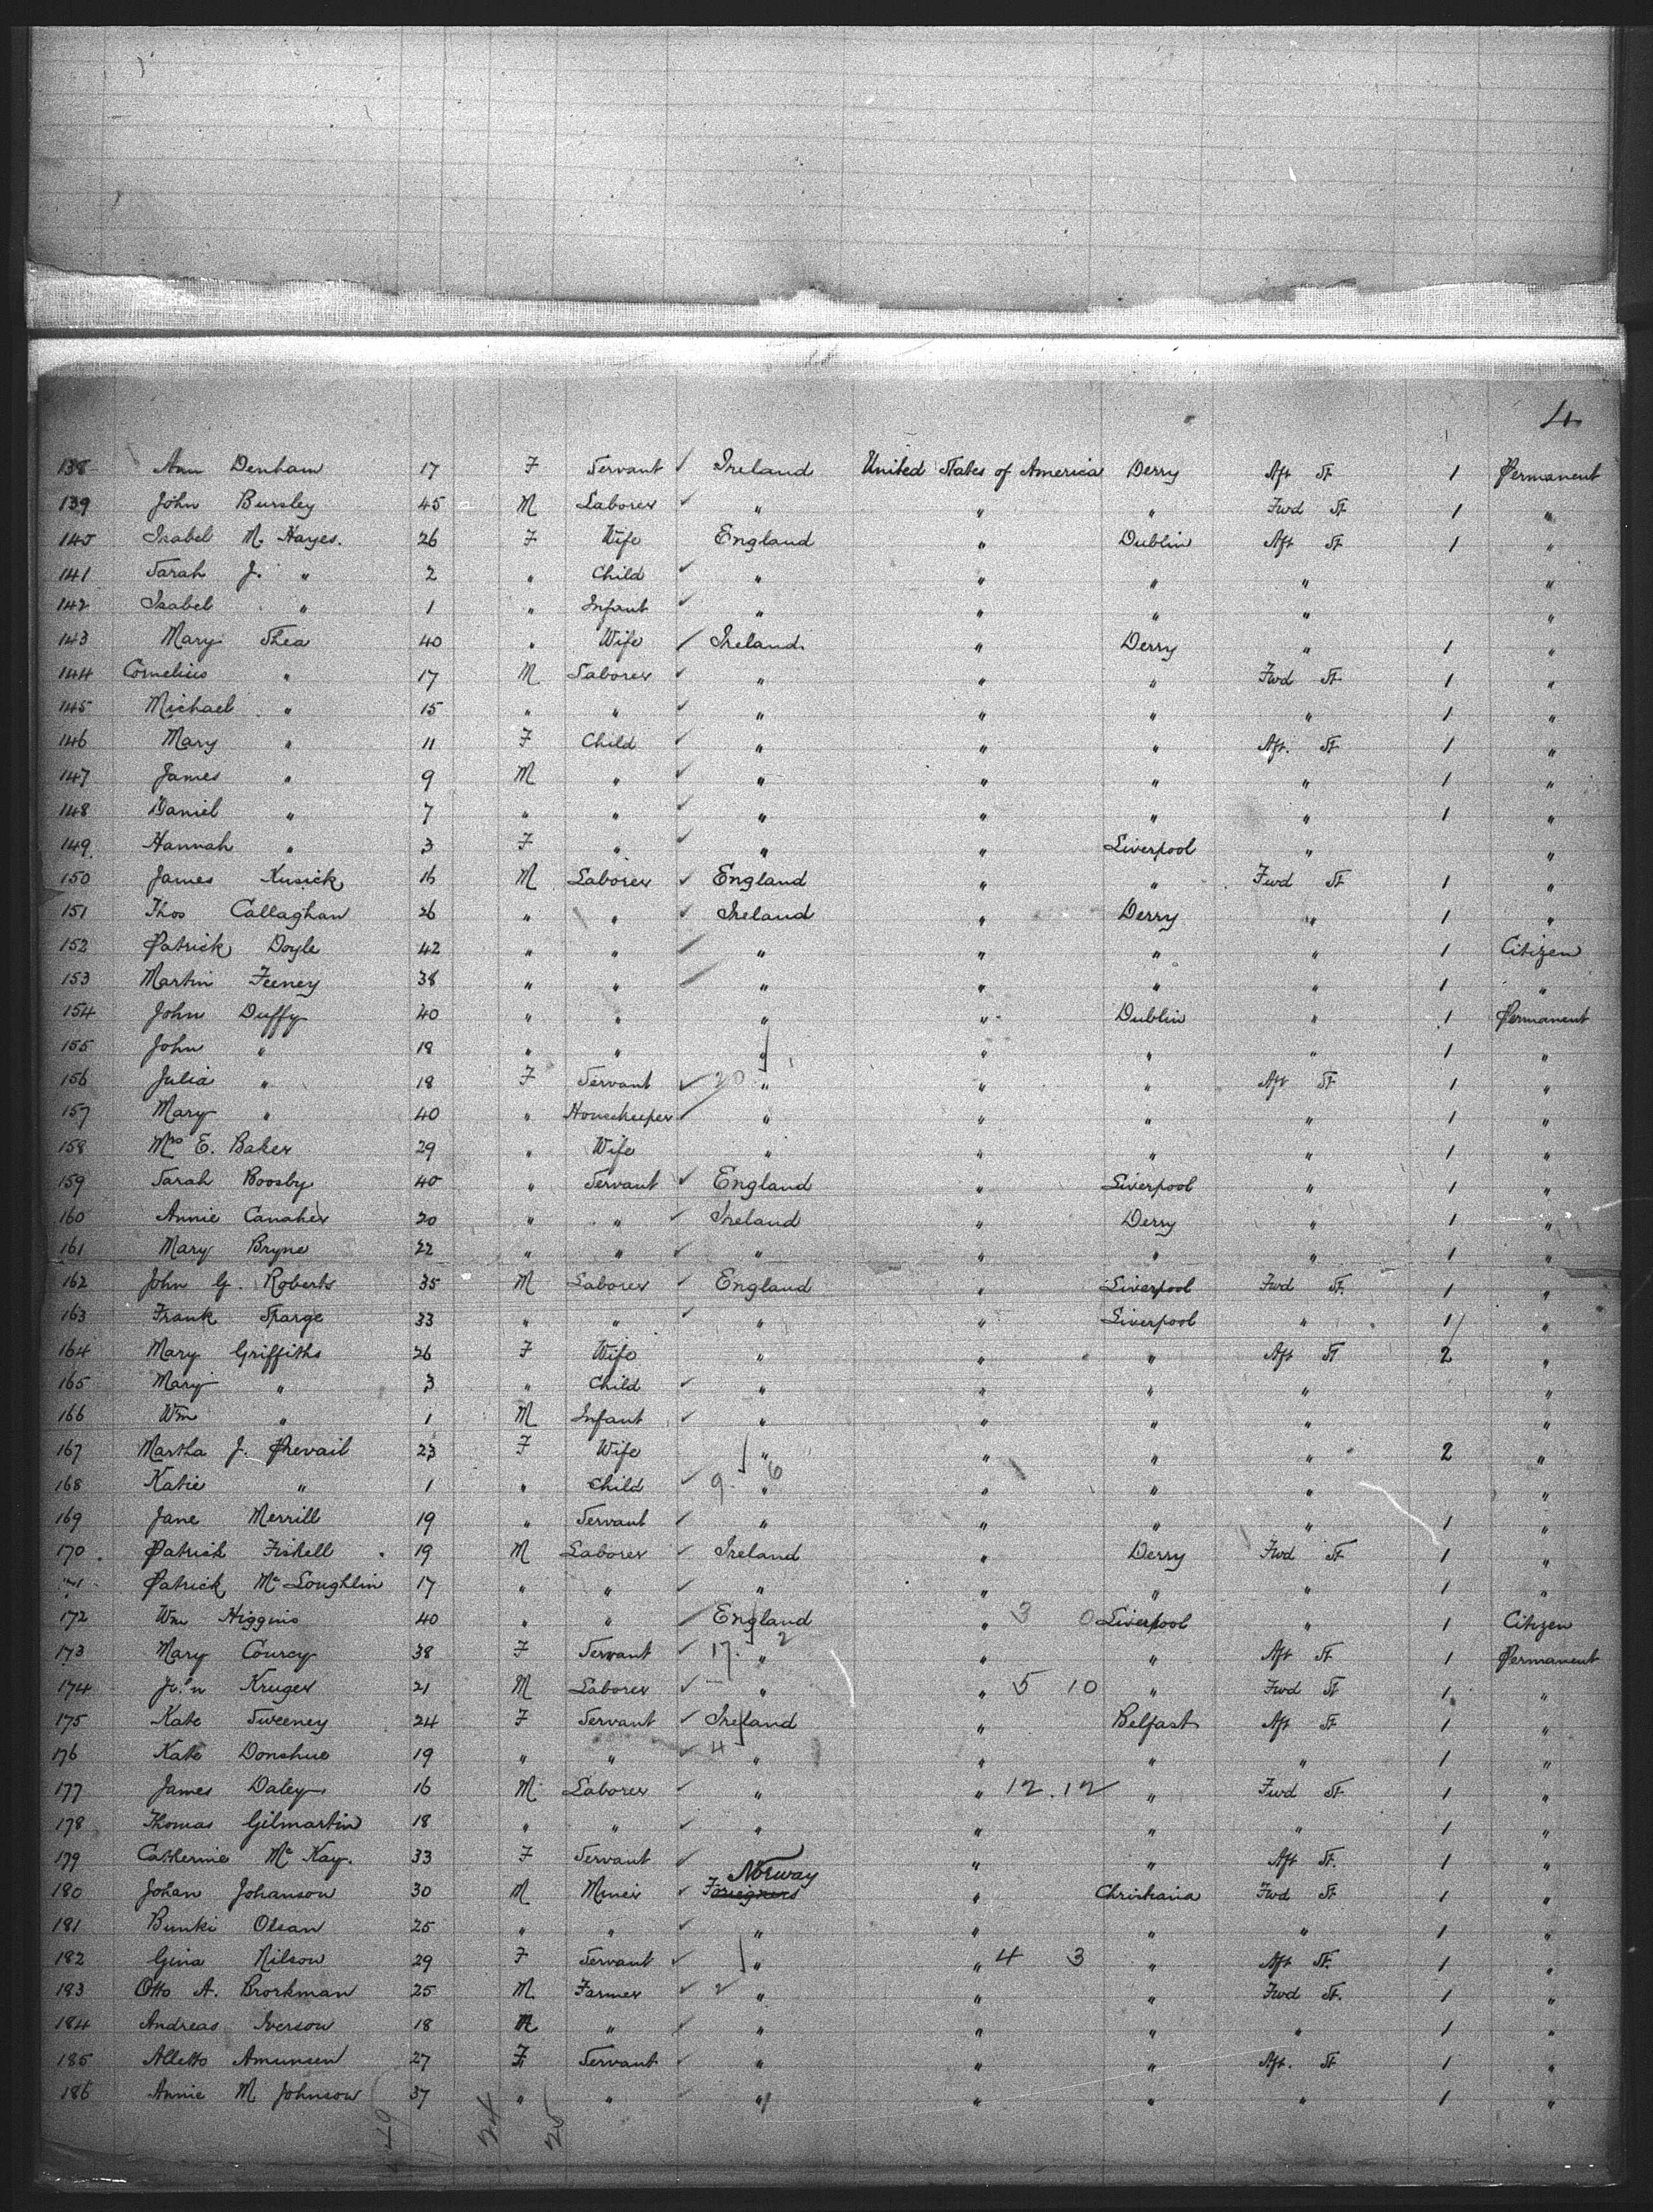 4
138 Ann Denham 17 F Servant ✓ Ireland United States of America Derry Aft St 1 Permanent
139 John Bursley 45 M Laborer ✓ " " " Fwd St 1 "
140 Isabel M. Hayes. 26 F Wife England " Dublin Aft St 1 "
141 Sarah J. " 2 " Child ✓ " " " " "
142 Isabel " 1 " Infant ✓ " " " " "
143 Mary Shea 40 " Wife ✓ Ireland " Derry " 1 "
144 Cornelius " 17 M Laborer ✓ " " " Fwd St 1 "
145 Michael " 15 " " ✓ " " " " 1 "
146 Mary " 11 F Child ✓ " " " Aft. St 1 "
147 James " 9 M " ✓ " " " " 1 "
148 Daniel " 7 " " ✓ " " " " 1 "
149 Hannah " 3 F " ✓ " " Liverpool " "
150 James Kusick 16 M Laborer ✓ England " " Fwd St 1 "
151 Thos Callaghan 26 " " ✓ Ireland " Derry " 1 "
152 Patrick Doyle 42 " " ✓ " " " " 1 Citizen
153 Martin Feeney 38 " " ✓ " " " " 1 "
154 John Duffy 40 " " " " Dublin " 1 Permanent
155 John " 18 " " " " " " 1 "
156 Julia " 18 F Servant ✓ 20 " " " Aft St 1 "
157 Mary " 40 " Housekeeper ✓ " " " " 1 "
158 Mrs E. Baker 29 " Wife " " " " 1 "
159 Sarah Boosby 40 " Servant ✓ England " Liverpool " 1 "
160 Annie Canaher 20 " " ✓ Ireland " Derry " 1 "
161 Mary Bryne 22 " " ✓ " " " " 1 "
162 John G. Roberts 35 M Laborer ✓ England " Liverpool Fwd St. 1 "
163 Frank Sparge 33 " " ✓ " " Liverpool " 1 "
164 Mary Griffiths 26 F Wife " " " Aft St 2 "
165 Mary " 3 " Child ✓ " " " " "
166 Wm " 1 M Infant ✓ " " " " "
167 Martha J. Prevail 23 F Wife " " " " 2 "
168 Katie " 1 " Child ✓ 9. 6 " " " " "
169 Jane Merrill 19 " Servant ✓ " " " " 1 "
170 Patrick Fishell 19 M Laborer ✓ Ireland " Derry Fwd St 1 "
171 Patrick Mc Loughlin 17 " " ✓ " " " " 1 "
172 Wm Higgins 40 " " ✓ England " 3 0 Liverpool " 1 Citizen
173 Mary Courcy 38 F Servant ✓ 17. 2 " " " Aft St 1 Permanent
174 Kruger 21 M Laborer ✓ " " 5 10 " Fwd St 1 "
175 Kate Sweeney 24 F Servant ✓ Ireland " Belfast Aft St 1 "
176 Kate Donohue 19 " " ✓ 4 " " " " 1 "
177 James Daley 16 M Laborer ✓ " " 12.12 " Fwd St 1 "
178 Thomas Gilmartin 18 " " ✓ " " " " 1 "
179 Catherine Mc Kay. 33 F Servant ✓ " " " Aft St. 1 "
Norway
180 Johan Johanson 30 M Miner ✓ Foreigners " Christiania Fwd St 1 "
181 Bunki Olsan 25 " " ✓ " " " " 1 "
182 Gina Nilson 29 F Servant ✓ " " 4 3 " Aft St. 1 "
183 Otto A. Brorkman 25 M Farmer ✓ 2 " " " Fwd St. 1 "
184 Andreas Iverson 18 M " ✓ " " " " 1 "
185 Alletto Amunsen 27 F Servant ✓ " " " Aft. St 1 "
186 Annie M Johnson 37 " " ✓ " " " " 1 "
49 24 25